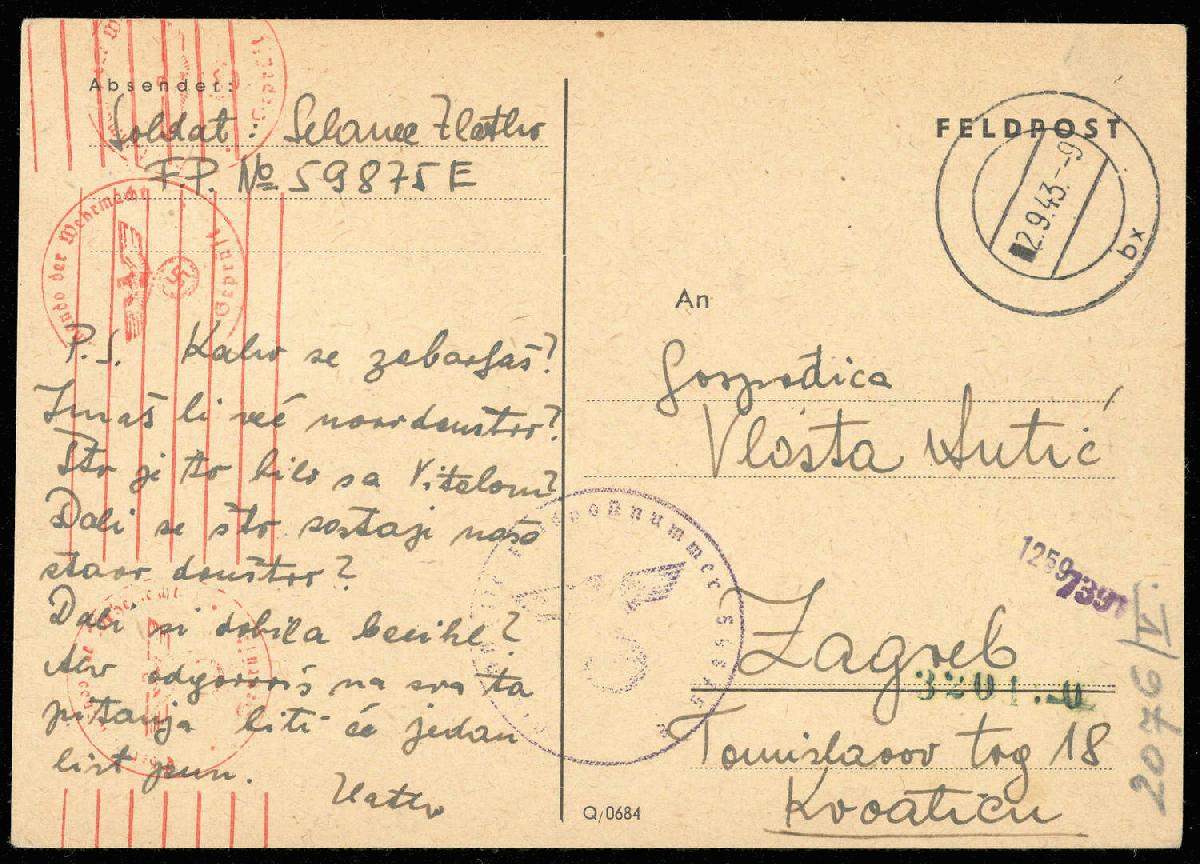 Absender:
Soldat: Selanec Zlatko
F.P. № 59875E
der Wehrmacht
Geprüft
P.S. Kako se zabavljaš?
Imaš li već novo društvo?
Što je to bilo sa Vitelom?
Dali se što sastaje naše
staro društvo?
Dali si dobila
Ako odgovoriš na sva ta
pitanja biti će jedan
list pun.
Zlatko
FELDPOST
12.9.43.-9
bx
An
Gospođica
Vlasta Sutić
1259
7391
Zagreb
3201.-0
Tomislavov trg 18
Kroatien
2076/V.
Feldpostnummer
Q/0684